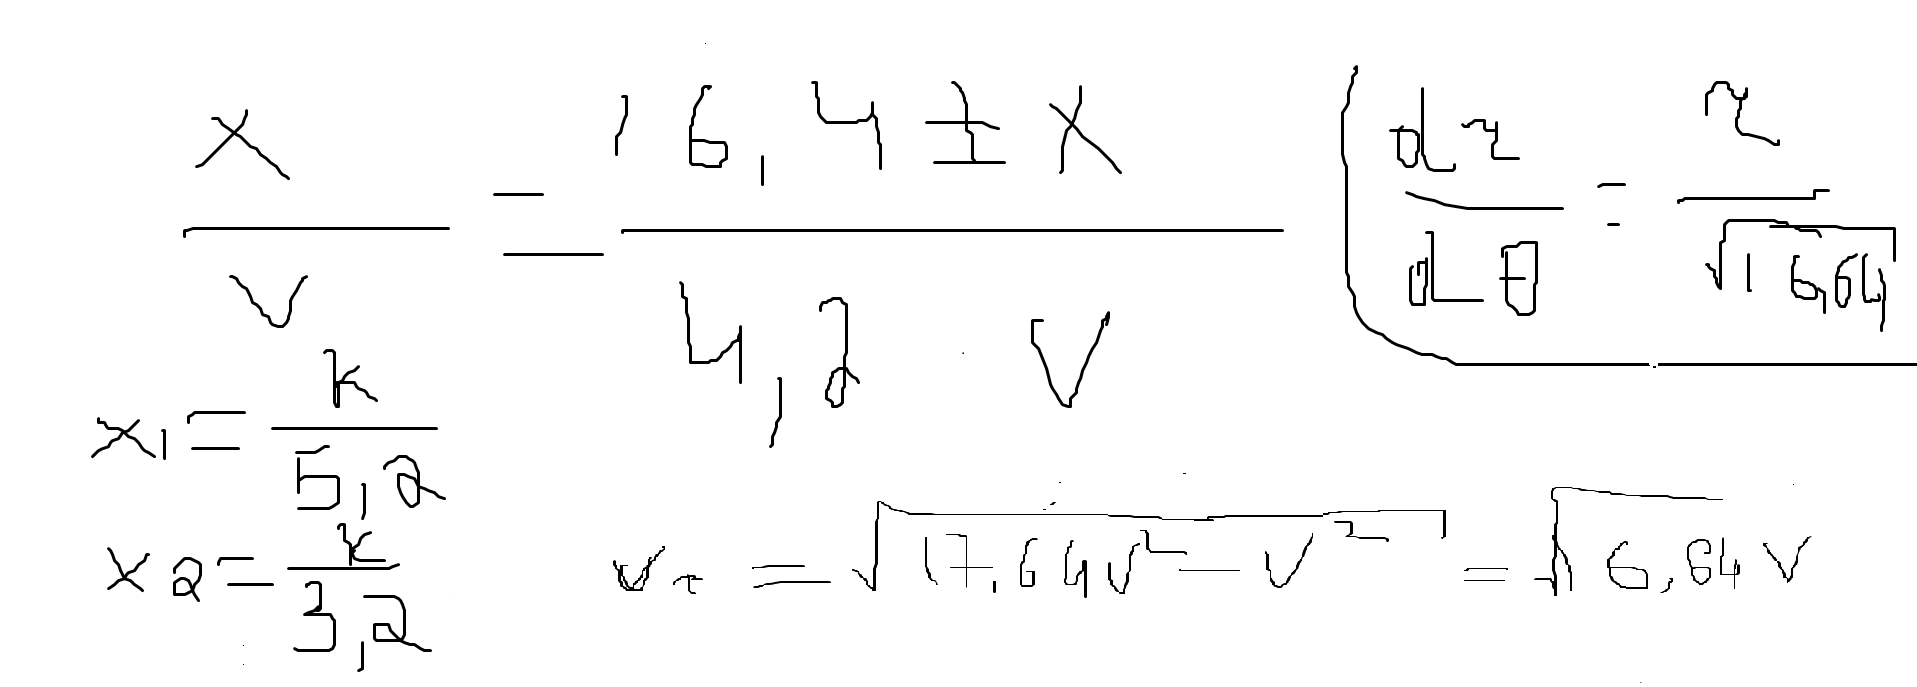 x/v = 16,4 ± x / 4,2 v
dr/dθ = r/√16,64
x1 = k/5,2
x2 = k/3,2
vτ = √17,64v² - v² = √16,64 v